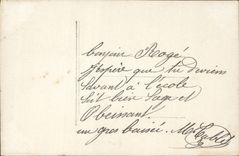 bonjour Rogé
j'espère que tu deviens
savant à l'école
soit bien sage et
Obeissant
un gros baisée.